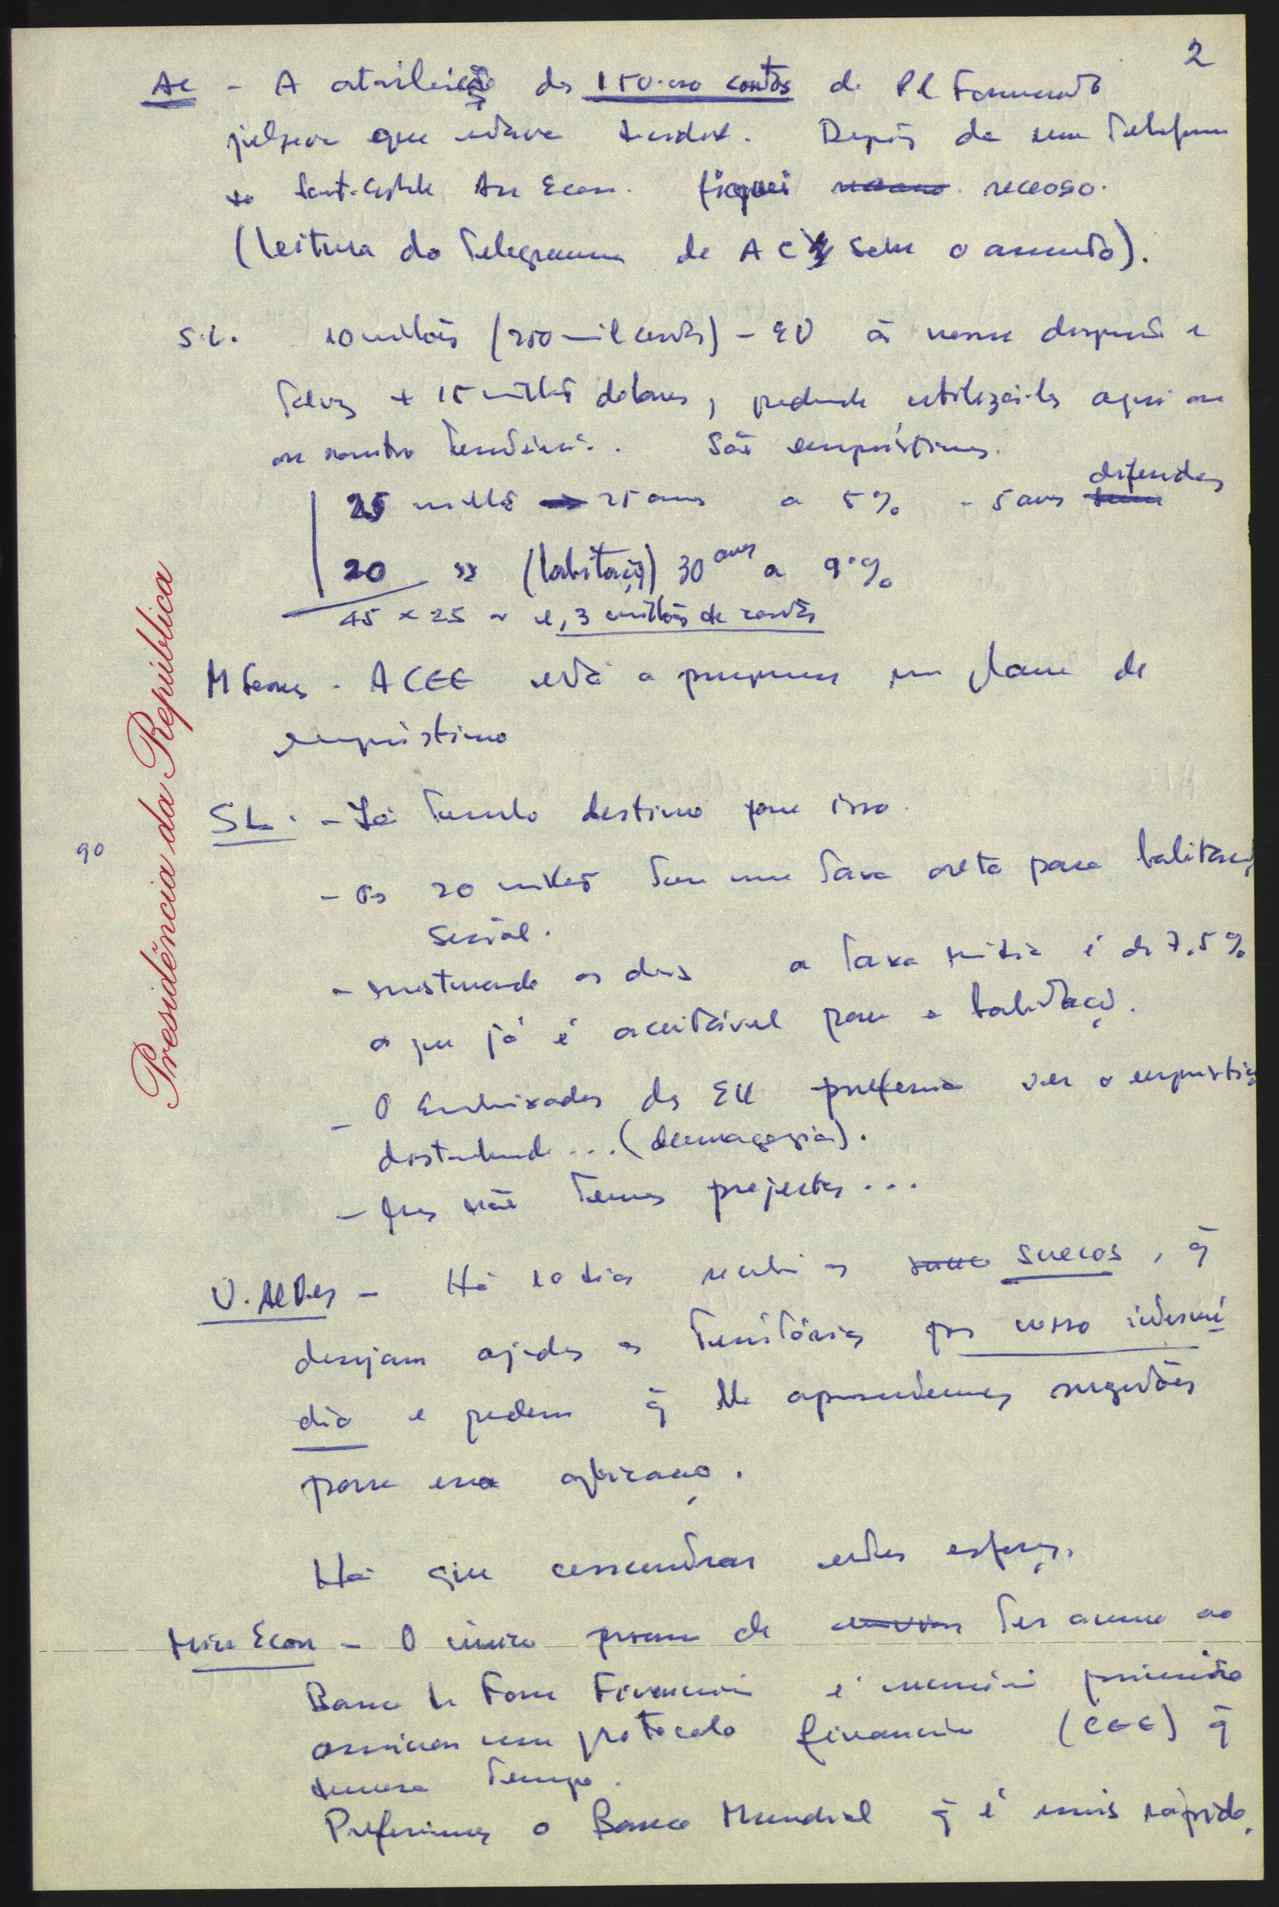 2
AC - A atribuição dos 150.000 contos do Pl Fomento
julgava que estava . Depois de um telefonema
Econ. fiquei receoso.
(leitura do telegrama de AC sobre o assunto).
S.L. 10 milhões (250 mil contos) - EU à nossa disposição e
talvez + 15 milhões dolares, podendo utilizá-los aqui ou
ou noutro território. São empréstimos.
25 milhões → 25 anos a 5% - 5 anos diferidos
20 " (habitação) 30 anos a 9%
45 x 25 ~ 1,3 milhões de contos
M Soares - A CEE está a preparar um plano de
empréstimo
SL. - Já tenho destino para isso.
90
Presidência da República
- Os 20 milhões têm uma taxa alta para habitação
social.
- misturando os dois a taxa média é de 7.5%
o que já é aceitável para a habitação.
- O Embaixador dos EU preferia ver o empréstimo
... (demagogia).
- Mas não temos projectos...
V. Alves - Há 10 dias recebi os suecos, q̃
desejam ajudar os territórios por nosso intermé
dio e pedem q̃ lhe apresentemos sugestões
para essa aplicação.
Há que concentrar estes esforços.
Min Econ - O único processo de ter acesso ao
Banco financeiro é necessário primeiro
assinar um protocolo financeiro (CEE) q̃
demora tempo.
Preferimos o Banco Mundial q̃ é mais rápido.